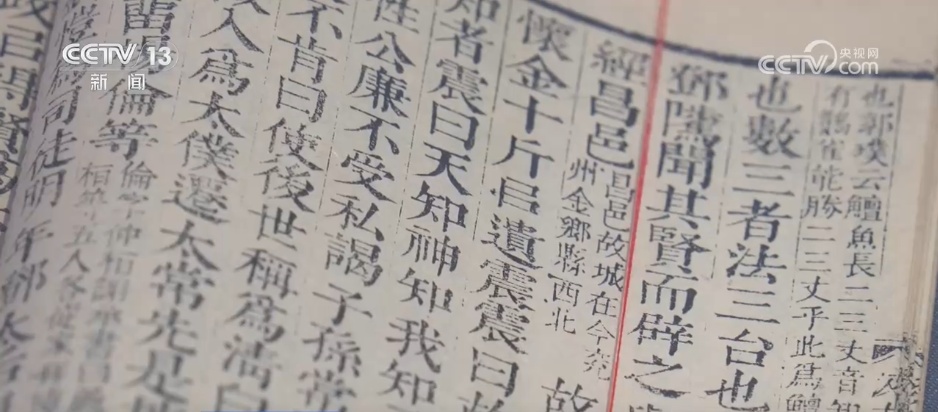 CCTV 13
新闻
央视网
CCTV.com
也郭璞云鱣魚長二三丈音
有鸛雀能勝二三丈乎此為鱣
也數三者法三台也
鄧隲聞其賢而辟之
經昌邑昌邑故城在今兖
州金鄉縣西北故
懷金十斤㠯遺震震曰故
知者震曰天知神知我知
性公廉不受私謁子孫常
不肯曰使後世稱爲清白
入爲太僕遷太常先是
倫等
司徒明年鄧太后